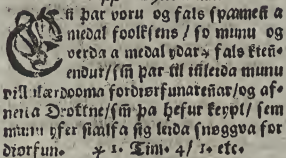 En þar voru og fals spamen a
medal foolksens / so munu og
verda a medal ydar fals kien-
endur / sm þar til inleida munu
vill lærdooma fordiorfunarennar / og af-
neita Drottne / sm þa hefur keypt / sem
munu yfer sialfa sig leida snøggva for
diorfun. 1. Tim. 4 / 1. etc.